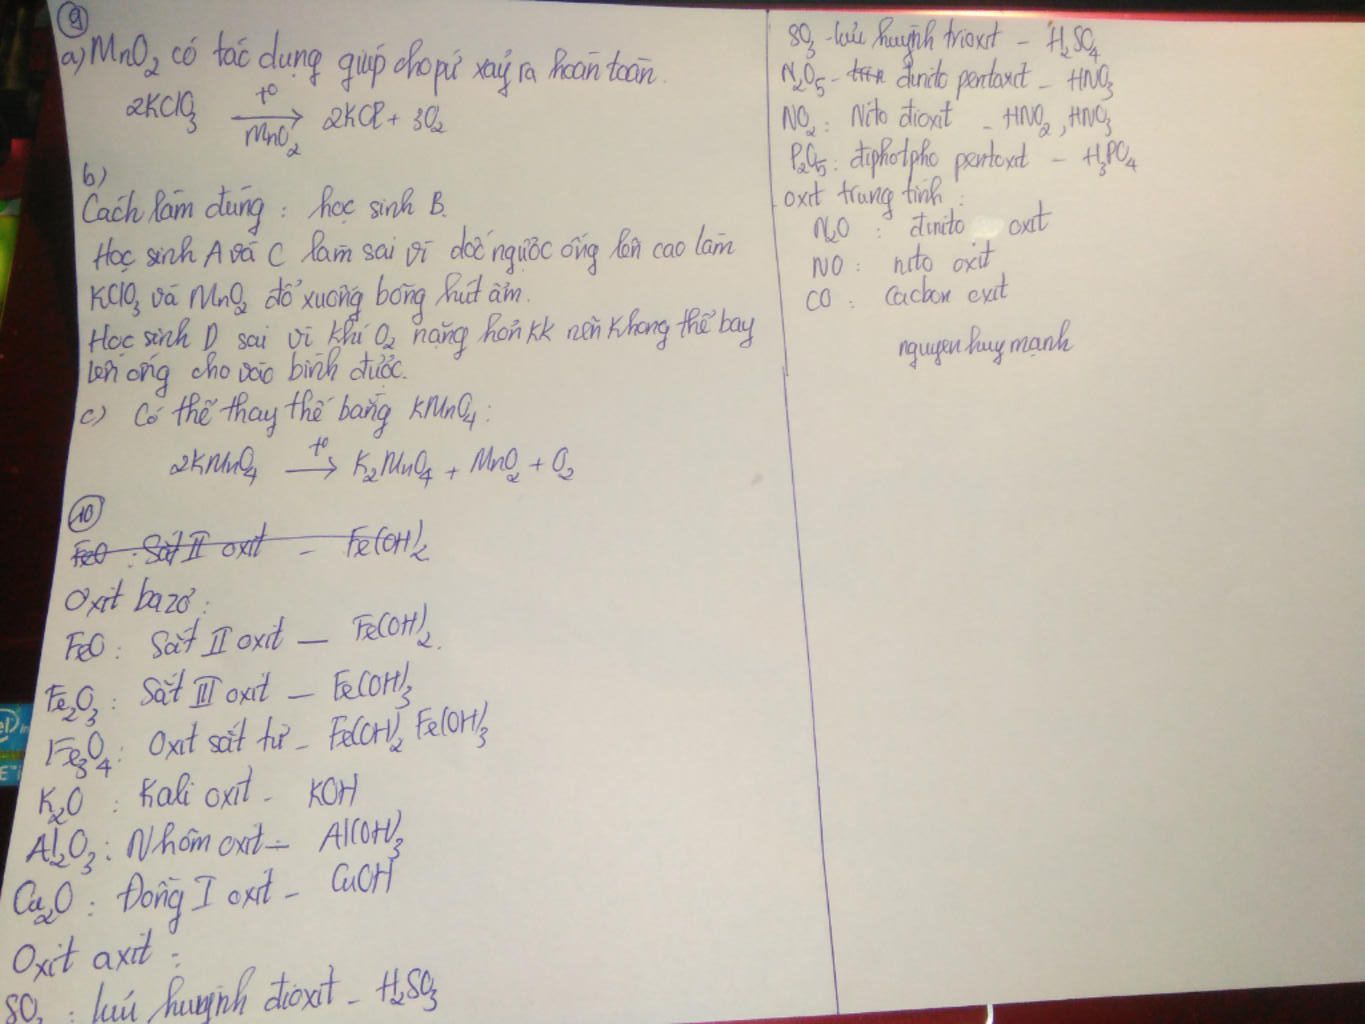 9
a) MnO2 có tác dụng giúp cho pứ xảy ra hoàn toàn.
2KClO3 t° → MnO2 2KCl + 3O2
b)
Cách làm đúng : học sinh B.
Học sinh A và C làm sai vì dốc ngược ống lên cao làm
KClO3 và MnO2 đổ xuống bông hút ẩm.
Học sinh D sai vì khí O2 nặng hơn kk nên không thể bay
lên ống cho vào bình được.
c) Có thể thay thế bằng KMnO4 :
2KMnO4 t° → K2MnO4 + MnO2 + O2
10
FeO : Sắt II oxit – Fe(OH)2
Oxit bazơ :
FeO : Sắt II oxit – Fe(OH)2.
Fe2O3 : Sắt III oxit – Fe(OH)3
Fe3O4 : Oxit sắt từ – Fe(OH)2 Fe(OH)3
K2O : Kali oxit – KOH
Al2O3 : Nhôm oxit – Al(OH)3
Cu2O : Đồng I oxit – CuOH
Oxit axit :
SO2 : lưu huỳnh đioxit – H2SO3
SO3 - lưu huỳnh trioxit – H2SO4
N2O5 - đinitơ pentaoxit – HNO3
NO2 : Nitơ đioxit – HNO2, HNO3
P2O5 : điphotpho pentoxit – H3PO4
oxit trung tính :
N2O : đinitơ oxit
NO : nitơ oxit
CO : cacbon oxit
nguyen huy mạnh